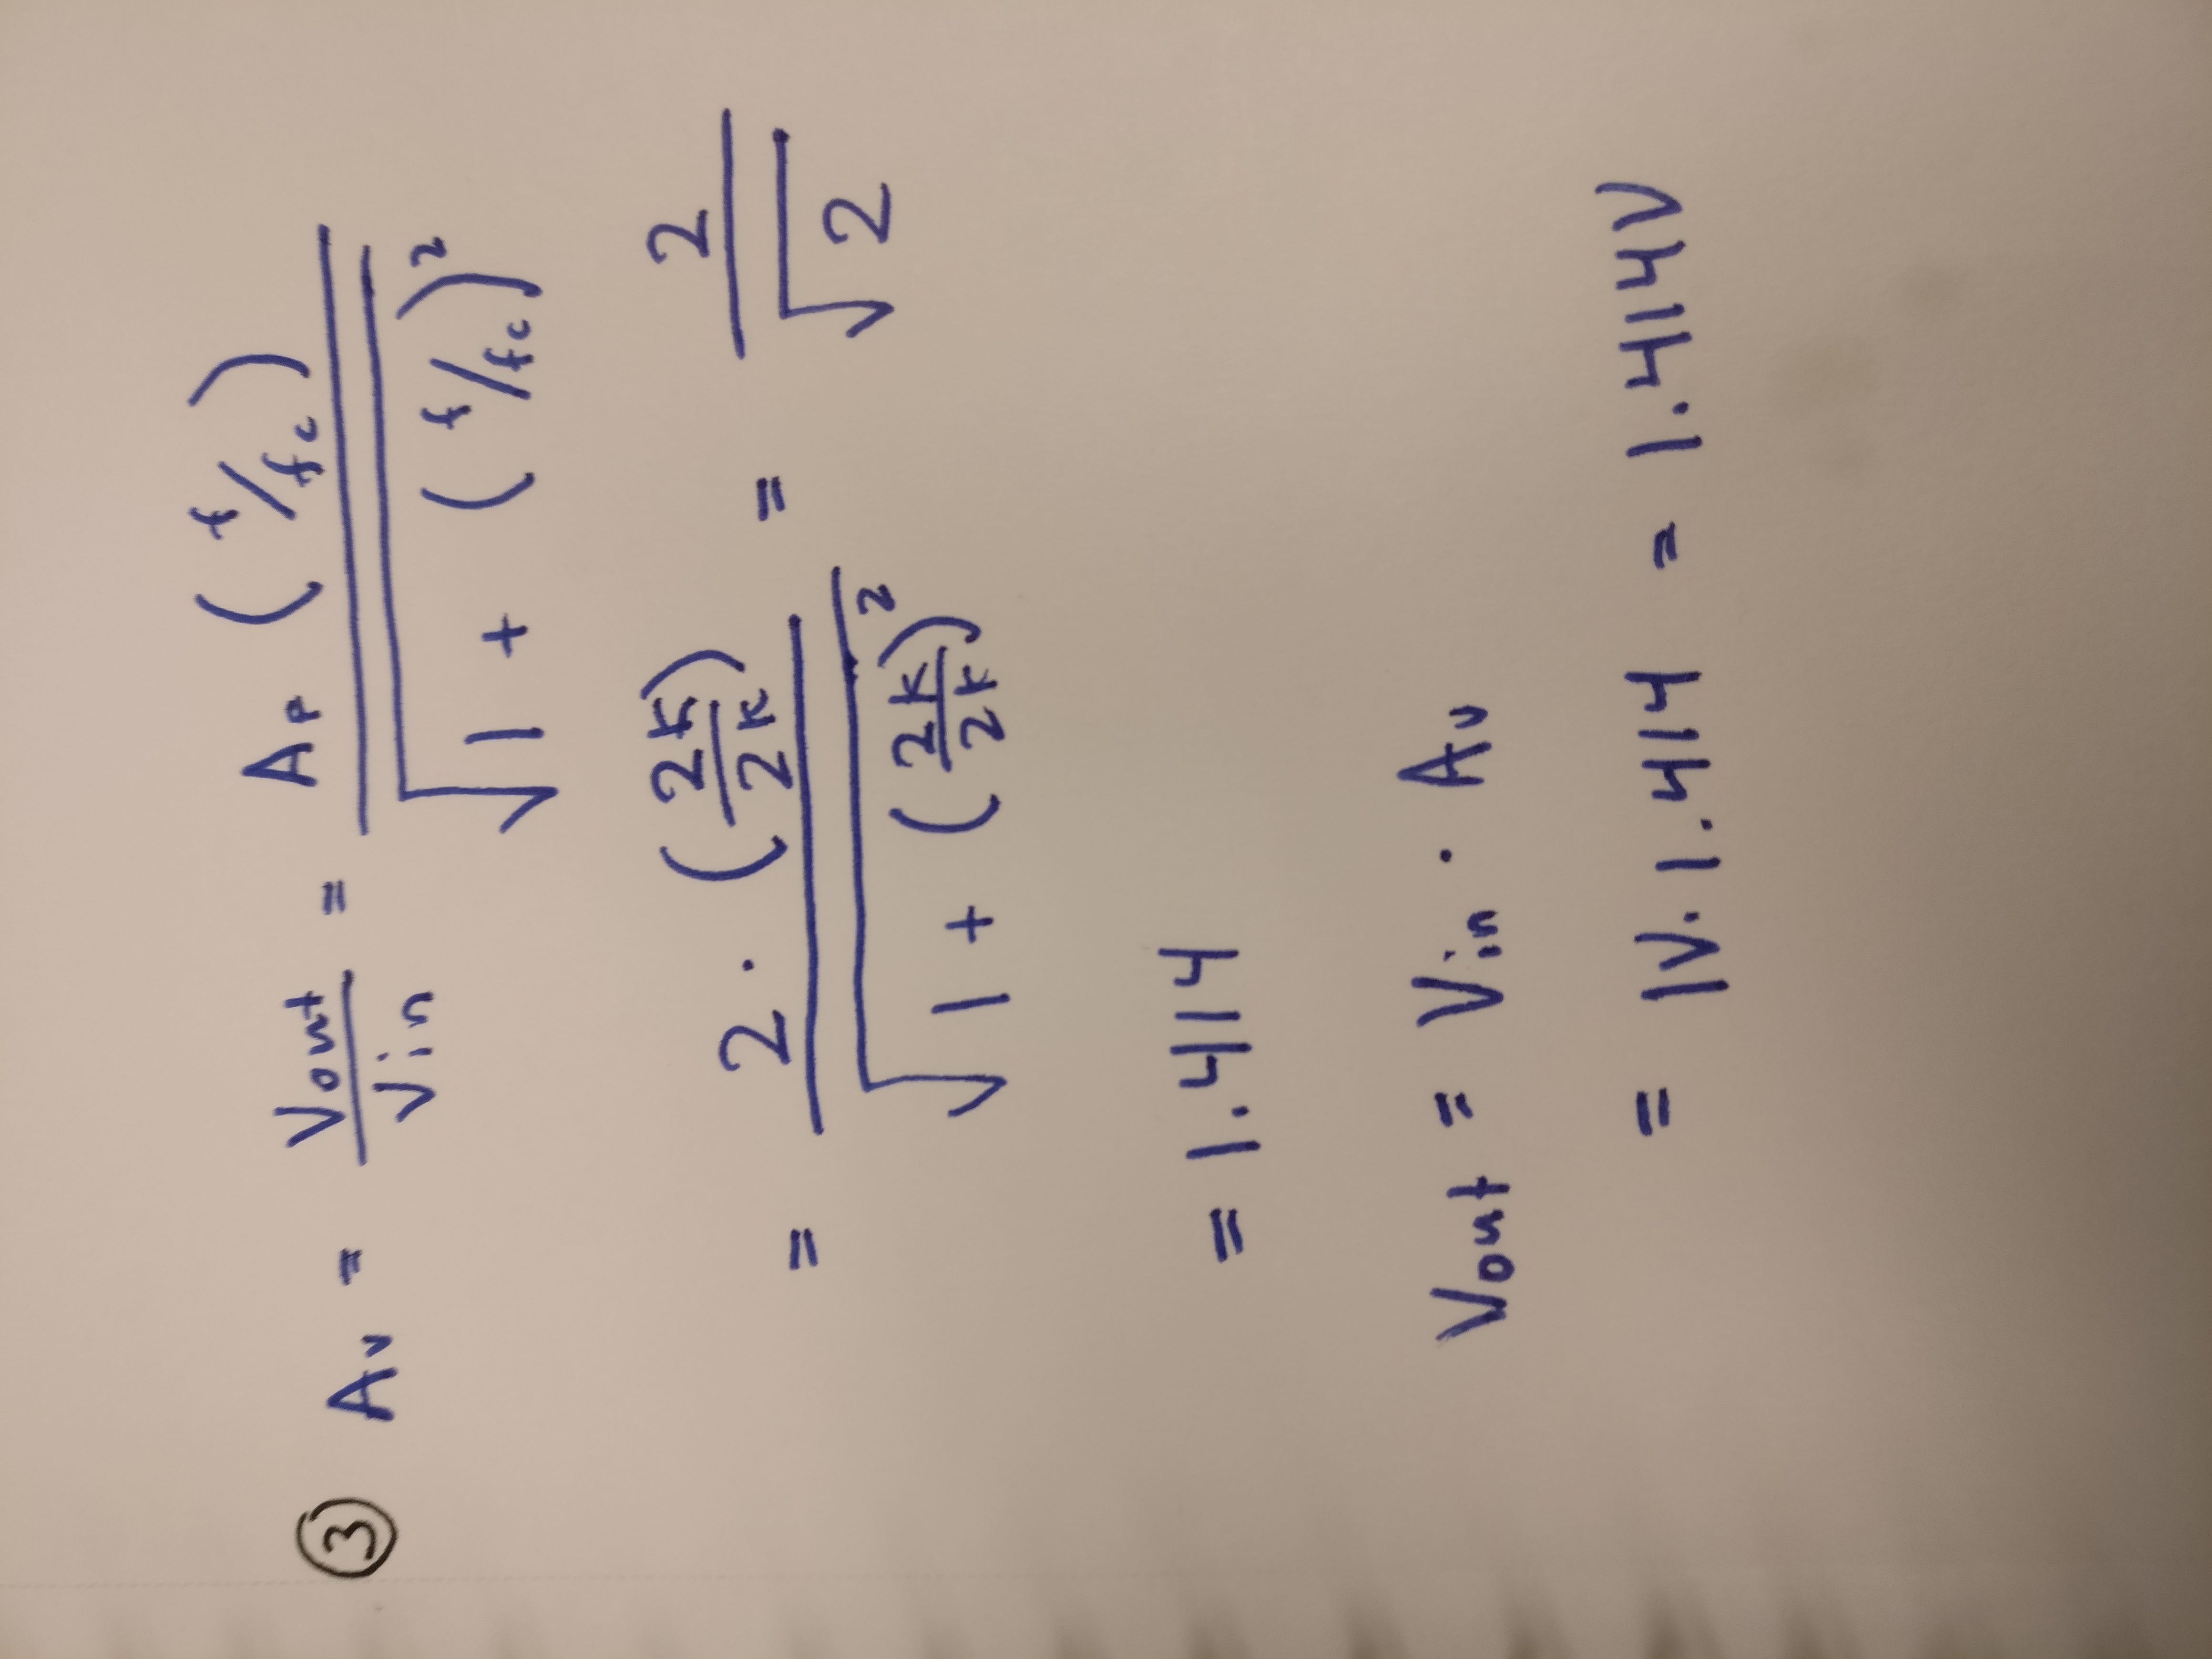 ③ Av = Vout / Vin = AF (f/fc) / √(1 + (f/fc)²)
= 2 · (2K/2K) / √(1 + (2K/2K)²) = 2 / √2
= 1.414
Vout = Vin · Av
= 1V · 1.414 = 1.414V